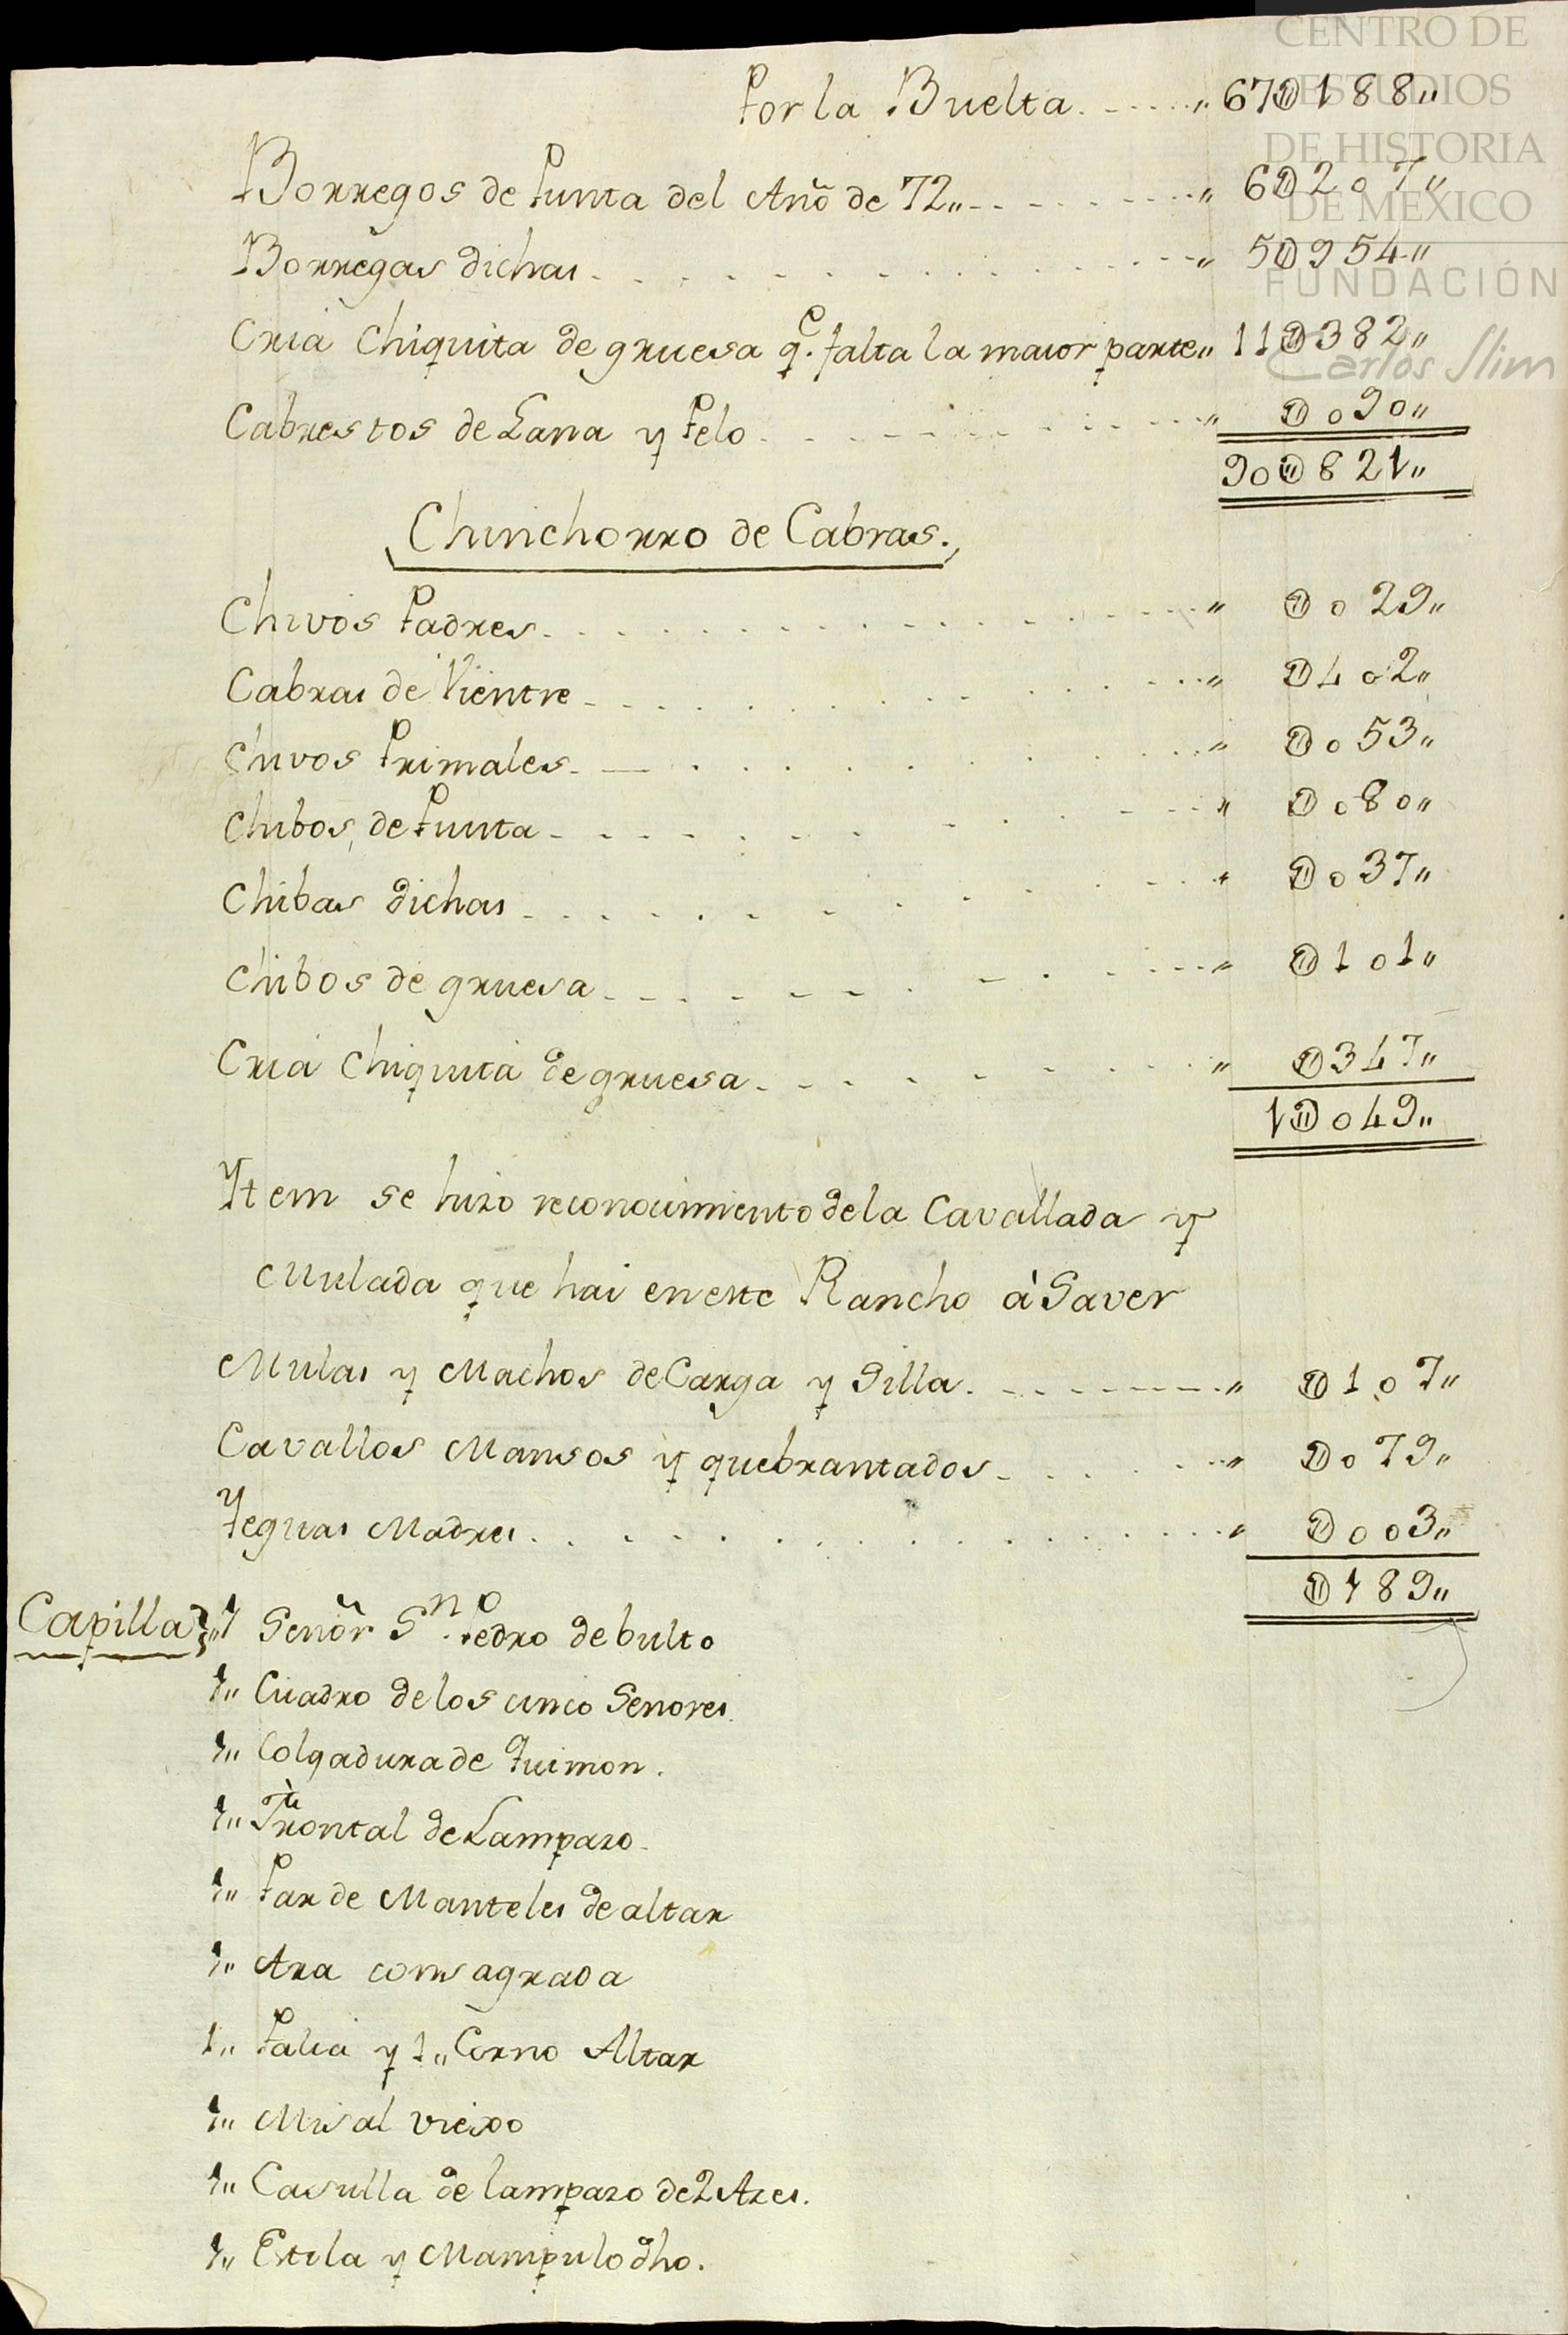 Por la Buelta. - - - - - „ 67Ⅾ188„
Borregos de Punta del Año de 72„ - - - - - - - - „ 6Ⅾ207„
Borregas dichas - - - - - - - - - - - - „ 5Ⅾ954„
Cria Chiquita de gruesa q.e falta la maior parte„ 11Ⅾ382„
Cabrestos de Lana y Pelo - - - - - - - - - „ Ⅾ090„
90Ⅾ821„
Chinchorro de Cabras.
Chivos Padres - - - - - - - - - - - - „ Ⅾ029„
Cabras de Vientre - - - - - - - - - - „ Ⅾ402„
Chivos Primales - - - - - - - - - - „ Ⅾ053„
Chibos, de Punta - - - - - - - - - - „ Ⅾ080„
Chibas dichas - - - - - - - - - - „ Ⅾ037„
Chibos de gruesa - - - - - - - - - - „ Ⅾ101„
Cria Chiquita de gruesa - - - - - - - - „ Ⅾ347„
1Ⅾ049„
Ytem se hizo reconocimiento de la Cavallada y
Mulada que hai en este Rancho à Saver
Mulas y Machos de Carga y Silla. - - - - - - - „ Ⅾ107„
Cavallos Mansos y quebrantados - - - - - - „ Ⅾ079„
Yeguas Madres - - - - - - - - - - - - „ Ⅾ003„
Ⅾ189„
Capilla „1 Señor S.n Pedro de bulto
1„ Cuadro de los cinco Senores
1„ Colgadura de Quimon.
1„ Frontal de Lampazo
1„ Par de Manteles de altar
1„ Ara consagrada
1„ Palia y 1„ Corno Altar
1„ Misal viexo
1„ Casulla de lampazo de 2 Azes.
1„ Estola y Manipulo dho.
CENTRO DE
ESTUDIOS
DE HISTORIA
DE MEXICO
FUNDACIÓN
Carlos Slim